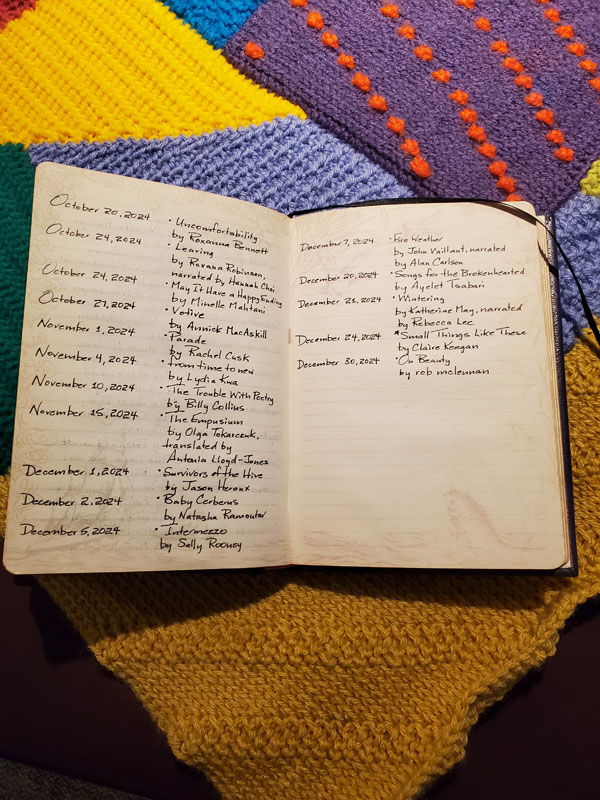 October 20, 2024 · Uncomfortability
by Roxanna Bennett
October 24, 2024 · Leaving
by Roxana Robinson,
narrated by Hannah Choi
October 24, 2024 · May It Have a Happy Ending
by Minelle Mahtani
October 27, 2024 · Votive
by Annick MacAskill
November 1, 2024 · Parade
by Rachel Cusk
November 4, 2024 · from time to new
by Lydia Kwa
November 10, 2024 · The Trouble With Poetry
by Billy Collins
November 15, 2024 · The Empusium
by Olga Tokarczuk,
translated by
Antonia Lloyd-Jones
December 1, 2024 · Survivors of the Hive
by Jason Heroux
December 2. 2024 · Baby Cerberus
by Natasha Ramoutar
December 5, 2024 · Intermezzo
by Sally Rooney
December 7, 2024 · Fire Weather
by John Vaillant, narrated
by Alan Carlson
December 20, 2024 · Songs for the Brokenhearted
by Ayelet Tsabari
December 21, 2024 · Wintering
by Katherine May, narrated
by Rebecca Lee
December 24, 2024 * Small Things Like These
by Claire Keegan
December 30, 2024 · On Beauty
by rob mclennan